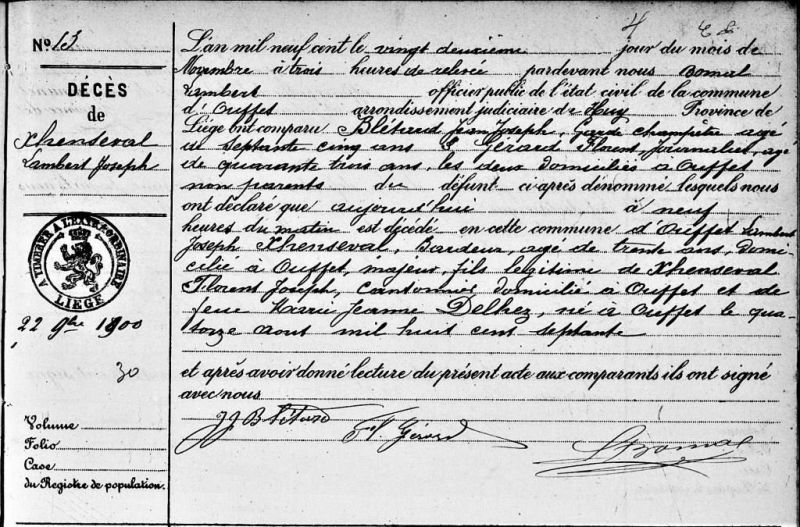 4
No 13
DÉCÈS
de
Xhenseval
Lambert Joseph
A TIMBRER A L'EXTRAORDINAIRE
LIEGE
22 9bre 1900
30
Volume
Folio
Case
du Registre de population.
L'an mil neuf cent le vingt deuxième jour du mois de
Novembre à trois heures de relevée pardevant nous Bomal
Lambert officier public de l'état civil de la commune
d'Ouffet arrondissement judiciaire de Huy Province de
Liège ont comparu Blétard Jean Joseph, Garde champêtre agé
de septante cinq ans & Gérard Florent, Journalier, agé
de quarante trois ans, les deux domiciliés à Ouffet
non parents du défunt ci-après dénommé lesquels nous
ont déclaré que aujourd'hui à neuf
heures du matin est décédé en cette commune d'Ouffet Lambert
Joseph Xhenseval, Bardeur, agé de trente ans, domi-
cilié à Ouffet, majeur, fils légitime de Xhenseval
Florent Joseph, cantonnier domicilié à Ouffet et de
feue Marie Jeanne Delhez, né à Ouffet le qua-
torze aout mil huit cent septante
et après avoir donné lecture du présent acte aux comparants ils ont signé
avec nous
J J Blétard Fl Gérard
L Bomal